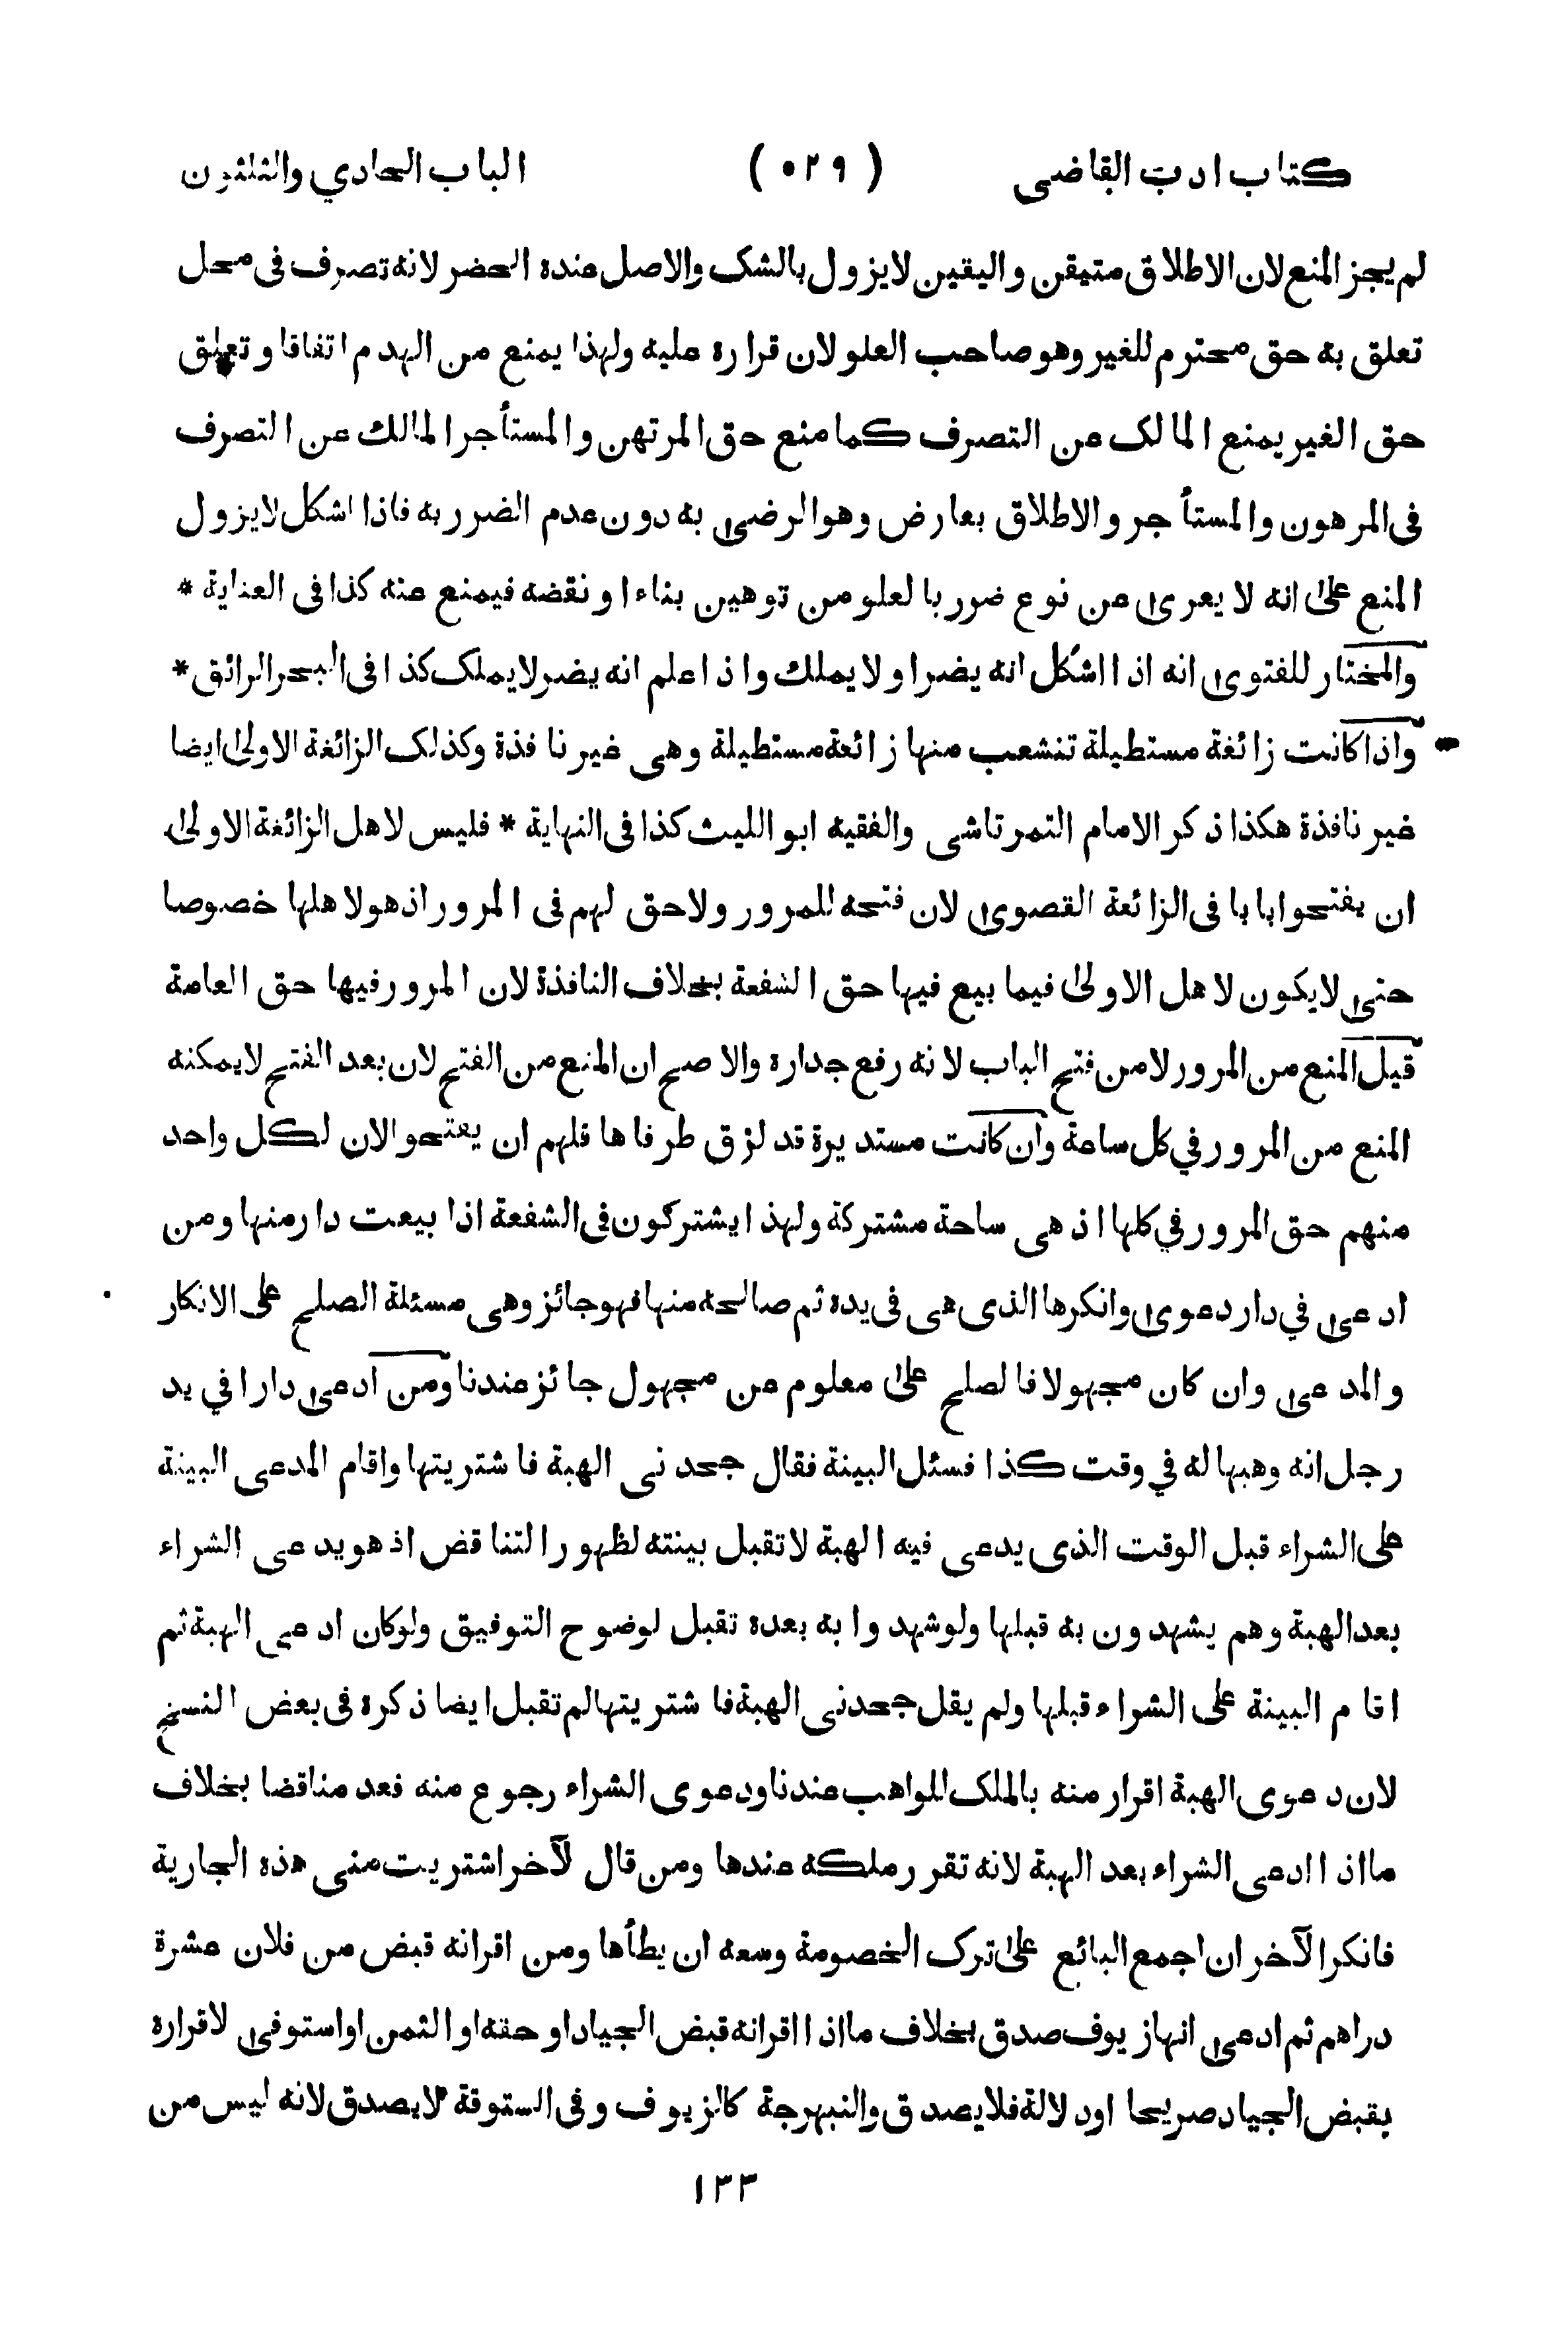 كتاب ادب القاضى (٥٢٩) الباب الحادي والثلثون
لم يجز المنع لان الاطلاق متيقن واليقين لايزول بالشك والاصل عنده الحضر لانه تصرف فى محل
تعلق به حق محترم للغير وهو صاحب العلو لان قراره عليه ولهذا يمنع من الهدم اتفاقا وتعلق
حق الغير يمنع المالك عن التصرف كما منع حق المرتهن والمستأجر المالك عن التصرف
فى المرهون والمستأجر والاطلاق بعارض وهو الرضى به دون عدم الضرر به فاذا اشكل لايزول
المنع على انه لا يعرى عن نوع ضرر بالعلو من توهين بناء او نقضه فيمنع عنه كذا فى العناية *
والمختار للفتوى انه اذا اشكل انه يضر اولا يملك واذا علم انه يضر لايملك كذا فى البحر الرائق *
واذا كانت زائغة مستطيلة تنشعب منها زائغة مستطيلة وهى غير نافذة وكذلك الزائغة الاولى ايضا
غير نافذة هكذا ذكر الامام التمرتاشى والفقيه ابو الليث كذا فى النهاية * فليس لاهل الزائغة الاولى
ان يفتحوا بابا فى الزائغة القصوى لان فتحه للمرور ولاحق لهم فى المرور اذ هو لاهلها خصوصا
حتى لايكون لاهل الاولى فيما بيع فيها حق الشفعة بخلاف النافذة لان المرور فيها حق العامة
قيل المنع من المرور لامن فتح الباب لانه رفع جداره والاصح ان المنع من الفتح لان بعد الفتح لايمكنه
المنع من المرور في كل ساعة وان كانت مستديرة قد لزق طرفاها فلهم ان يفتحوا لان لكل واحد
منهم حق المرور في كلها اذ هى ساحة مشتركة ولهذا يشتركون فى الشفعة اذا بيعت دار منها ومن
ادعى في دار دعوى وانكرها الذى هى فى يده ثم صالحه منها فهو جائز وهى مسئلة الصلح على الانكار
والمدعى وان كان مجهولا فالصلح على معلوم عن مجهول جائز عندنا ومن ادعى دارا في يد
رجل انه وهبها له في وقت كذا فسئل البينة فقال جحدنى الهبة فاشتريتها واقام المدعى البينة
على الشراء قبل الوقت الذى يدعى فيه الهبة لاتقبل بينته لظهور التناقض اذ هو يدعى الشراء
بعد الهبة وهم يشهدون به قبلها ولو شهدوا به بعده تقبل لوضوح التوفيق ولو كان ادعى الهبة ثم
اقام البينة على الشراء قبلها ولم يقل جحدنى الهبة فاشتريتها لم تقبل ايضا ذكره فى بعض النسخ
لان دعوى الهبة اقرار منه بالملك للواهب عندنا ودعوى الشراء رجوع منه فعد مناقضا بخلاف
ما اذا ادعى الشراء بعد الهبة لانه تقرر ملكه عندها ومن قال لآخر اشتريت منى هذه الجارية
فانكر الآخر ان اجمع البائع على ترك الخصومة وسعه ان يطأها ومن اقرانه قبض من فلان عشرة
دراهم ثم ادعى انهاز يوف صدق بخلاف ما اذا اقرانه قبض الجياد او حقه او الثمن او استوفى لاقراره
بقبض الجياد صريحا او دلالة فلا يصدق والنبهرجة كالزيوف وفى الستوقة لايصدق لانه ليس من
١٣٣